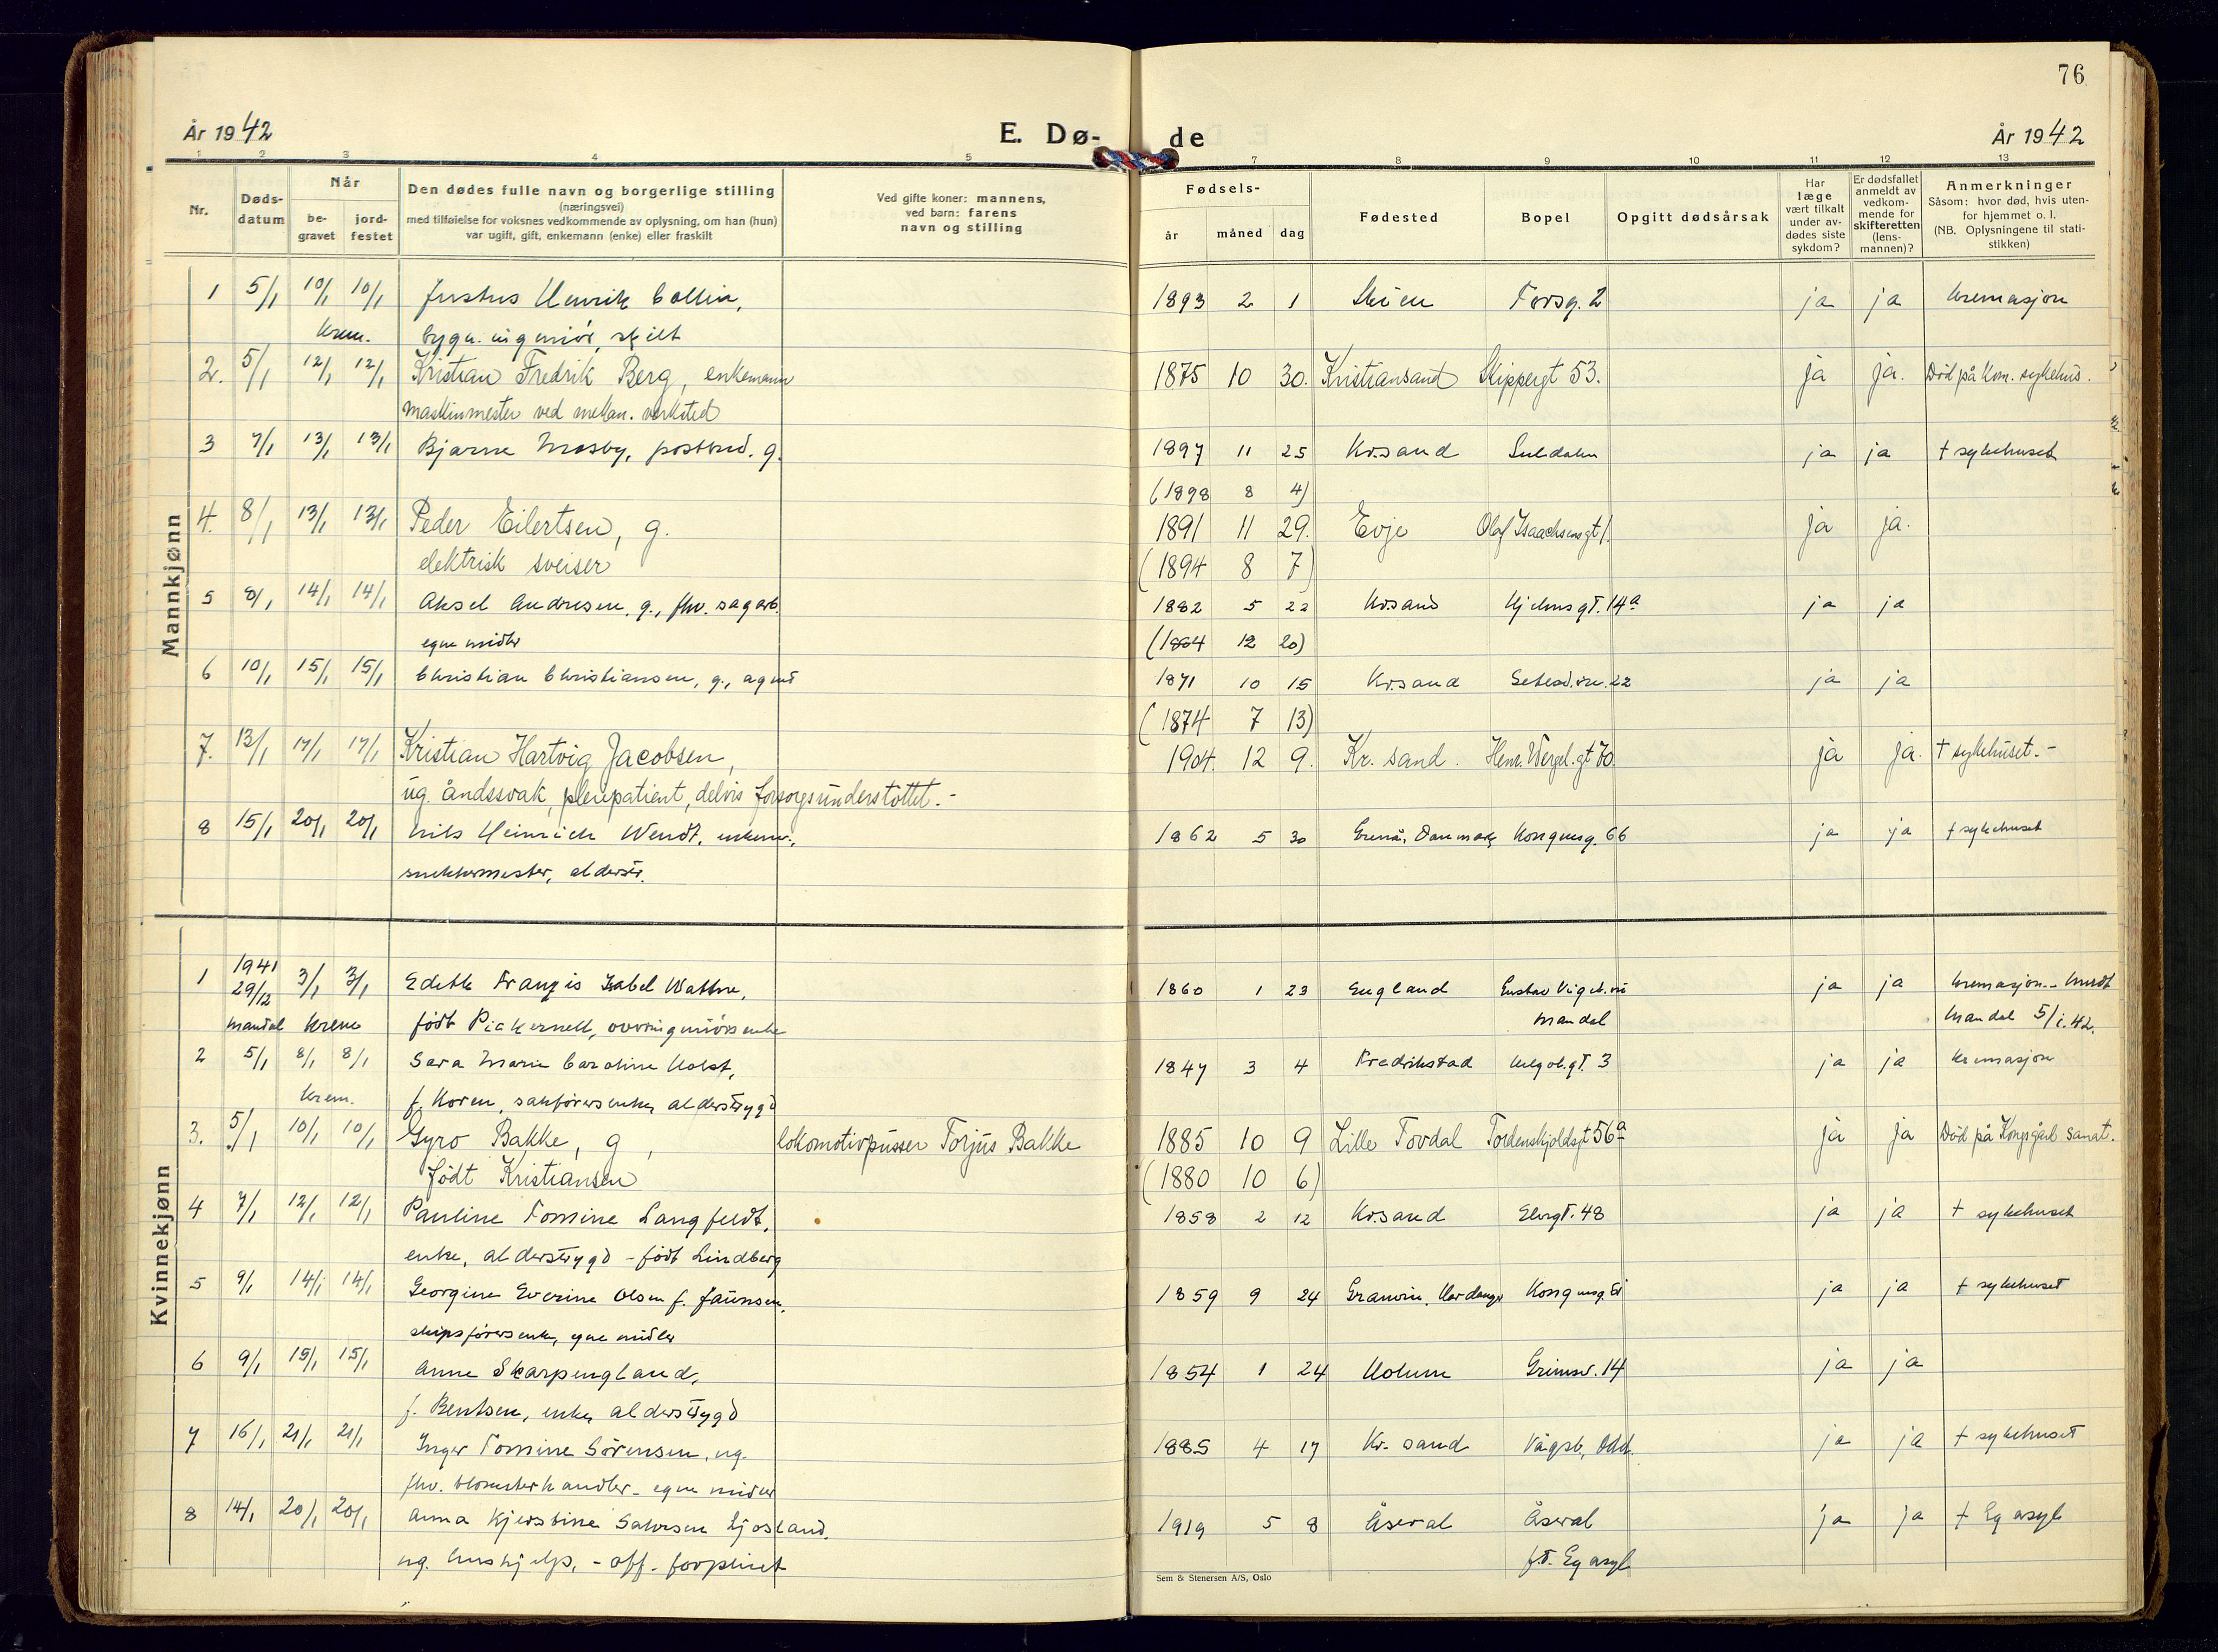 76
År 1942
E. Dø-
de
År 1942
1 2 3 4 5 7 8 9 10 11 12 13
Nr.
Døds-
datum
Når
be-
gravet
jord-
festet
Den dødes fulle navn og borgerlige stilling
(næringsvei)
med tilføielse for voksnes vedkommende av oplysning, om han (hun)
var ugift, gift, enkemann (enke) eller fraskilt
Ved gifte koner: mannens,
ved barn: farens
navn og stilling
Fødsels-
år måned dag
Fødested
Bopel
Opgitt dødsårsak
Har
læge
vært tilkalt
under av-
dødes siste
sykdom?
Er dødsfallet
anmeldt av
vedkom-
mende for
skifteretten
(lens-
mannen)?
Anmerkninger
Såsom: hvor død, hvis uten-
for hjemmet o. l.
(NB. Oplysningene til stati-
stikken)
Mannkjønn
1 5/1 10/1 10/1 Justus Henrik Collin, 1893 2 1 Skien Torsg. 2 ja ja kremasjon
krem. bygn. ingeniør, skilt
2. 5/1 12/1 12/1 Kristian Fredrik Berg, enkemann 1875 10 30. Kristiansand Skippergt 53. ja ja. Død på kom. sykehus.
maskinmester ved mekan. verksted
3 7/1 13/1 13/1 Bjarne Mosby, postbud. g. 1897 11 25 Kr.sand Suldalen ja ja † sykehuset
(1898 8 4)
4. 8/1 13/1 13/1 Peder Eilertsen, g. 1891 11 29. Evje Olaf Isaachsensgt 1. ja ja.
elektrisk sveiser (1894 8 7)
5 8/1 14/1 14/1 Aksel Andresen, g., fhv. sagarb. 1882 5 22 Kr.sand Hjelmsgt. 14a ja ja
egne midler (1884 12 20)
6 10/1 15/1 15/1 Christian Christiansen, g., agent 1871 10 15 Kr.sand Setesd.vn. 22 ja ja
(1874 7 13)
7. 13/1 17/1 17/1 Kristian Hartvig Jacobsen, 1904. 12 9. Kr. sand. Henr. Wergel.gt 70. ja ja. † sykehuset.-
ug. åndssvak, pleiepatient, delvis forsorgsunderstøttet.-
8 15/1 20/1 20/1 Nils Heinrich Wendt, enkem., 1862 5 30 Grenå, Danmark Kongensg. 66 ja ja † sykehuset
snekkermester, alderstr.
Kvinnekjønn
1 1941 29/12 3/1 3/1 Edith Francis Isabel Wattne, 1860 1 23 England Gustav Vigel. vei ja ja kremasjon -
Mandal krem født Pickernell, overingeniørs enke Mandal Mandal 5/1.42.
2 5/1 8/1 8/1 Sara Marie Caroline Holst, 1847 3 4 Fredrikstad Helgol.gt. 3 ja ja kremasjon
krem. f. Koren, sakførers enke, alderstrygd
3. 5/1 10/1 10/1 Gyro Bakke, g, lokomotivpusser Torjus Bakke 1885 10 9 Lille Tovdal Tordenskjoldsgt 56a ja ja Død på Kongsgård sanat.
født Kristiansen (1880 10 6)
4 7/1 12/1 12/1 Pauline Tomine Langfeldt, 1858 2 12 Kr.sand Elvegt. 48 ja ja † sykehuset
enke, alderstrygd - født Lindberg
5 9/1 14/1 14/1 Georgine Severine Olsen f. Jaunsen, 1859 9 24 Granvin, Hardanger Kongensg. ja ja † sykehuset
skipsførers enke, egne midler
6 9/1 15/1 15/1 Anne Skarpengland, 1854 1 24 Holum Grimsv. 14 ja ja
f. Bentsen, enke, alderstrygd
7 16/1 21/1 21/1 Inger Tomine Sørensen, ug. 1885 4 17 Kr. sand Vågsb., Odd. ja ja † sykehuset
fhv. blomsterhandler - egne midler
8 14/1 20/1 20/1 Anna Kjerstine Salvesen Ljosland. 1919 5 8 Åseral Åseral ja ja † Eg asyl
ug. hushjelp, - off. forpleiet f.t. Eg asyl
Sem & Stenersen A/S, Oslo